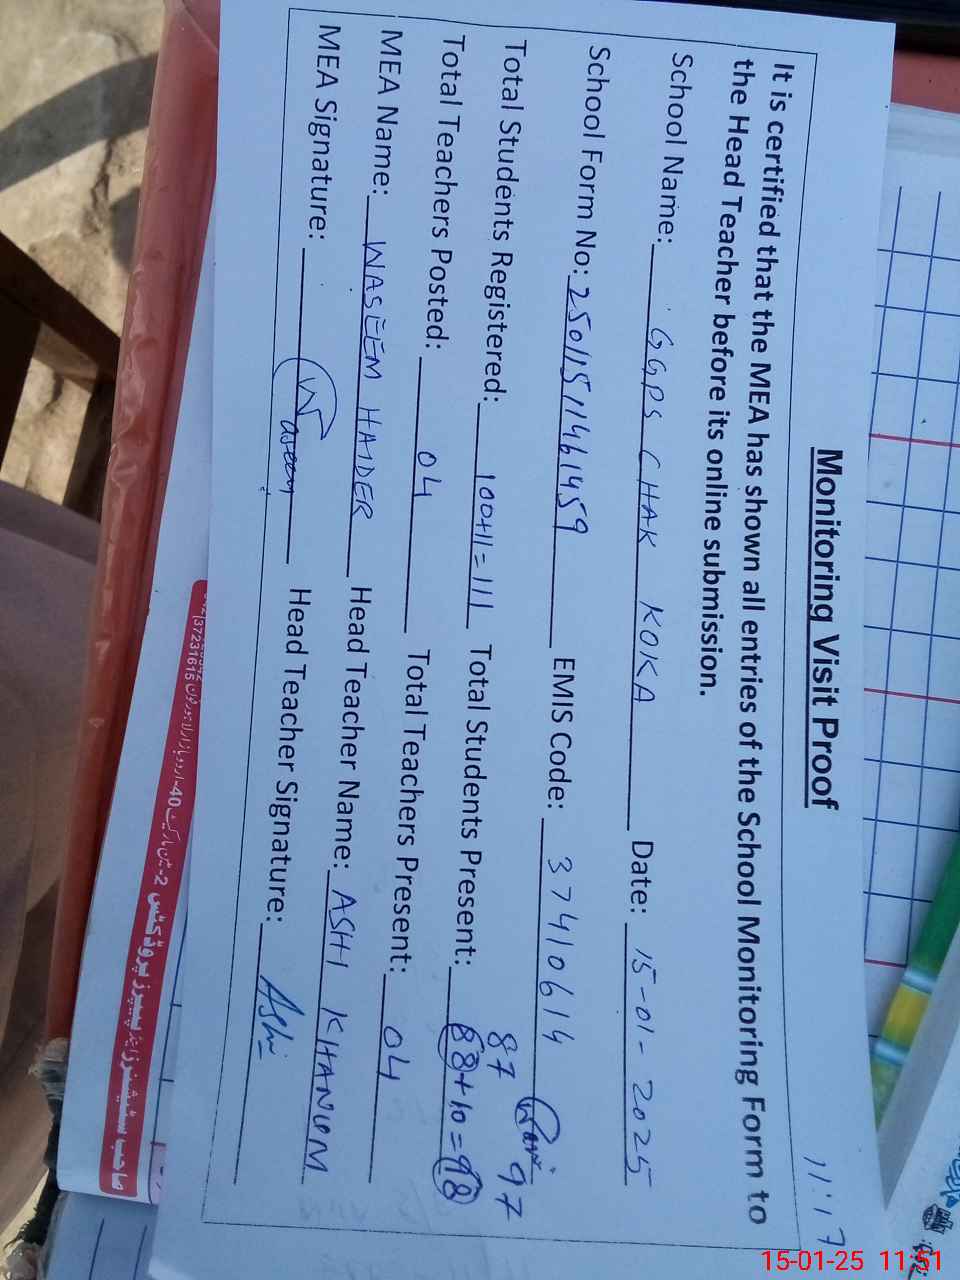 11:17
Monitoring Visit Proof
It is certified that the MEA has shown all entries of the School Monitoring Form to
the Head Teacher before its online submission.
School Name: GGPS CHAK KOKA Date: 15-01-2025
School Form No: 25011511461459 EMIS Code: 37410614
87 97
Total Students Registered: 100+11=111 Total Students Present: 88+10=98
Total Teachers Posted: 04 Total Teachers Present: 04
MEA Name: WASEEM HAIDER Head Teacher Name: ASHI KHANUM
MEA Signature: Waseem Head Teacher Signature: Ashi
صاحب سٹیشنرز اینڈ پیپرز پروڈکٹس
37231616
15-01-25 11:51